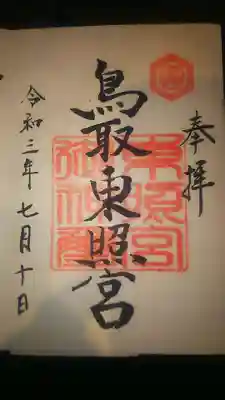 奉拝
鳥取東照宮
令和三年七月十日